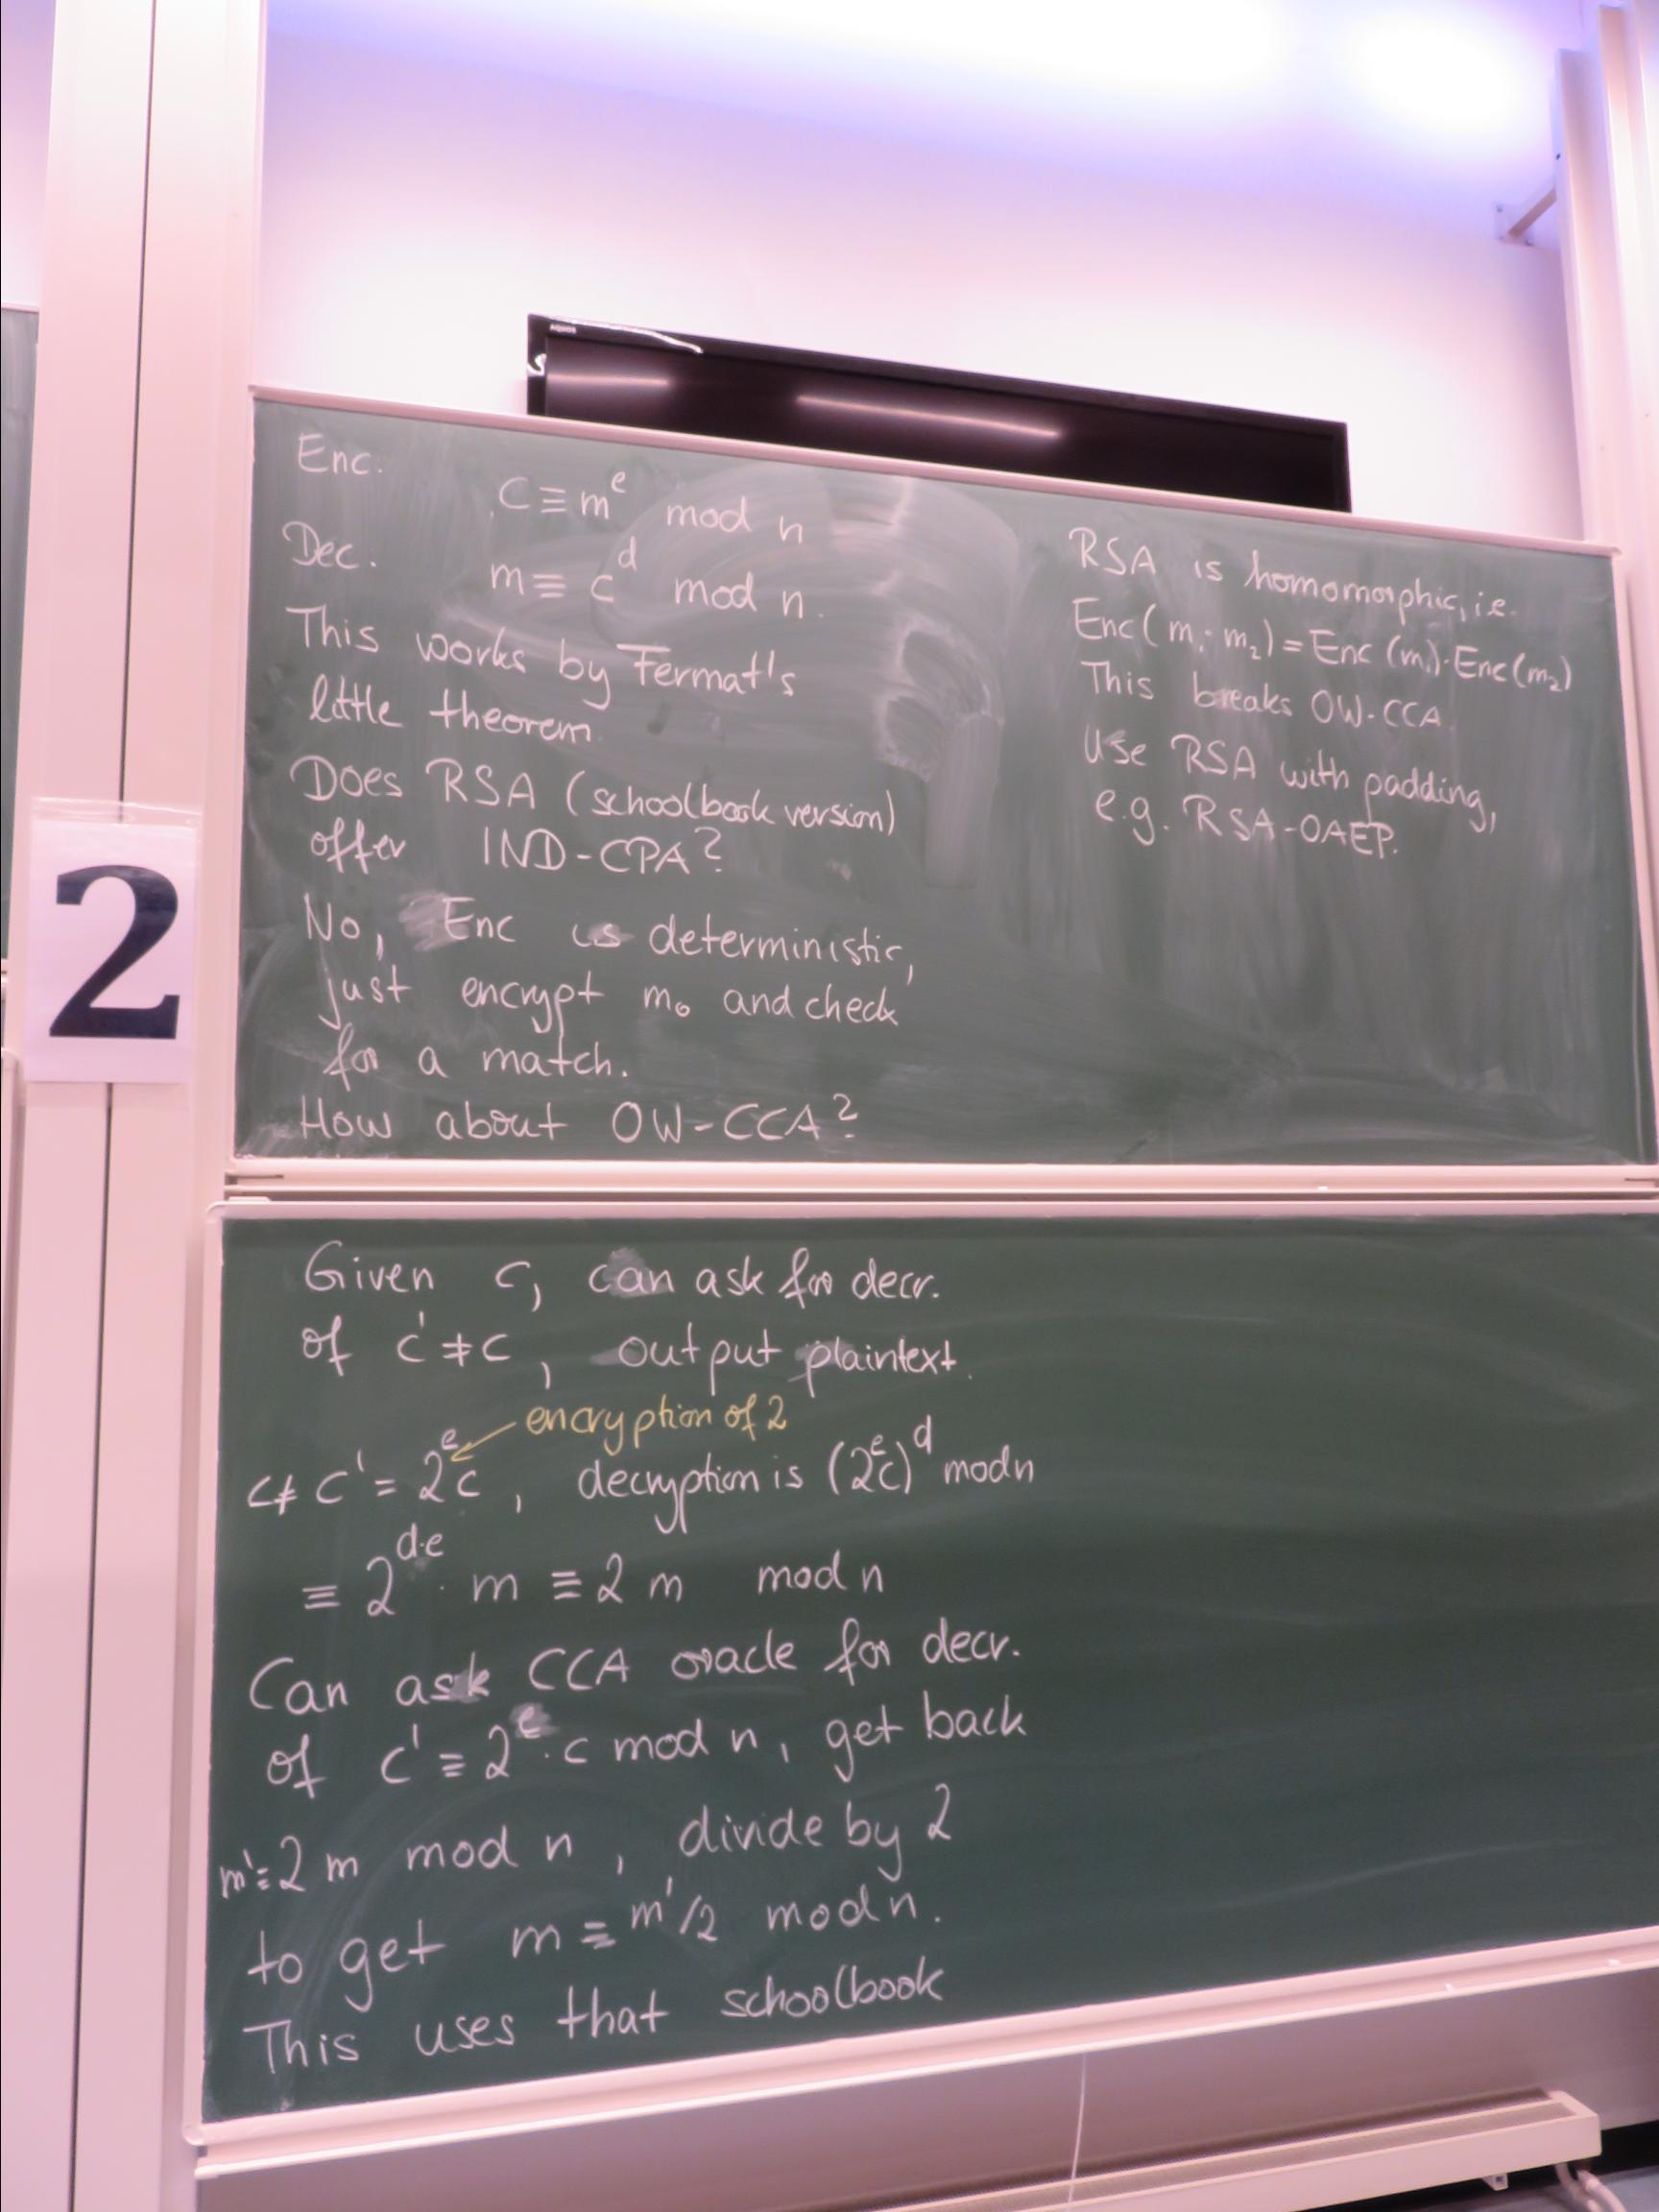 AQUOS
Enc.
c ≡ m^e mod n
Dec.
m ≡ c^d mod n.
This works by Fermat's
little theorem.
Does RSA (schoolbook version)
offer IND-CPA?
No, Enc is deterministic,
just encrypt m₀ and check
for a match.
How about OW-CCA?
2
Given c, can ask for decr.
of c' ≠ c, output plaintext.
encryption of 2
c ≠ c' = 2^e c, decryption is (2^e c)^d mod n
≡ 2^{d·e} · m ≡ 2 m mod n
Can ask CCA oracle for decr.
of c' ≡ 2^e · c mod n, get back
m' = 2 m mod n, divide by 2
to get m ≡ m'/2 mod n.
This uses that schoolbook
RSA is homomorphic, i.e.
Enc(m₁ · m₂) = Enc(m₁) · Enc(m₂)
This breaks OW-CCA.
Use RSA with padding,
e.g. RSA-OAEP.